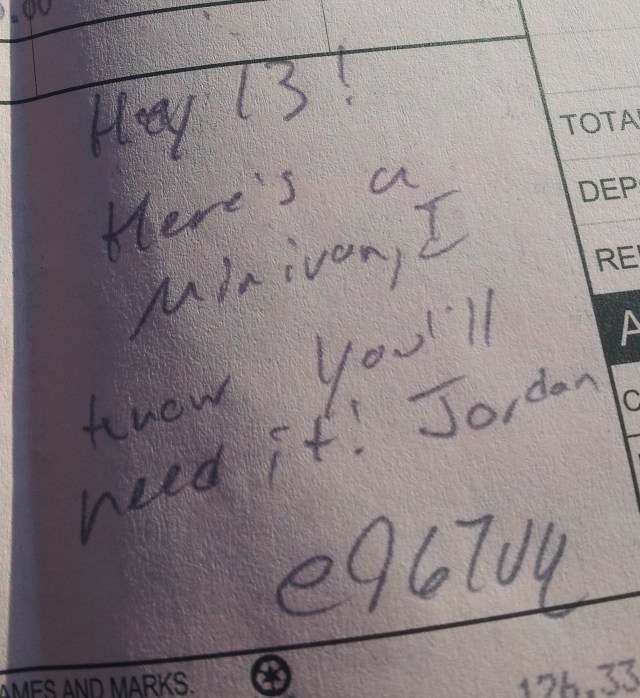 5.00
Hey 13!
Here's a
Minivan, I
know you'll
need it! Jordan
e967vy
TOTA
DEP
RE
A
C
AMES AND MARKS.
126.33